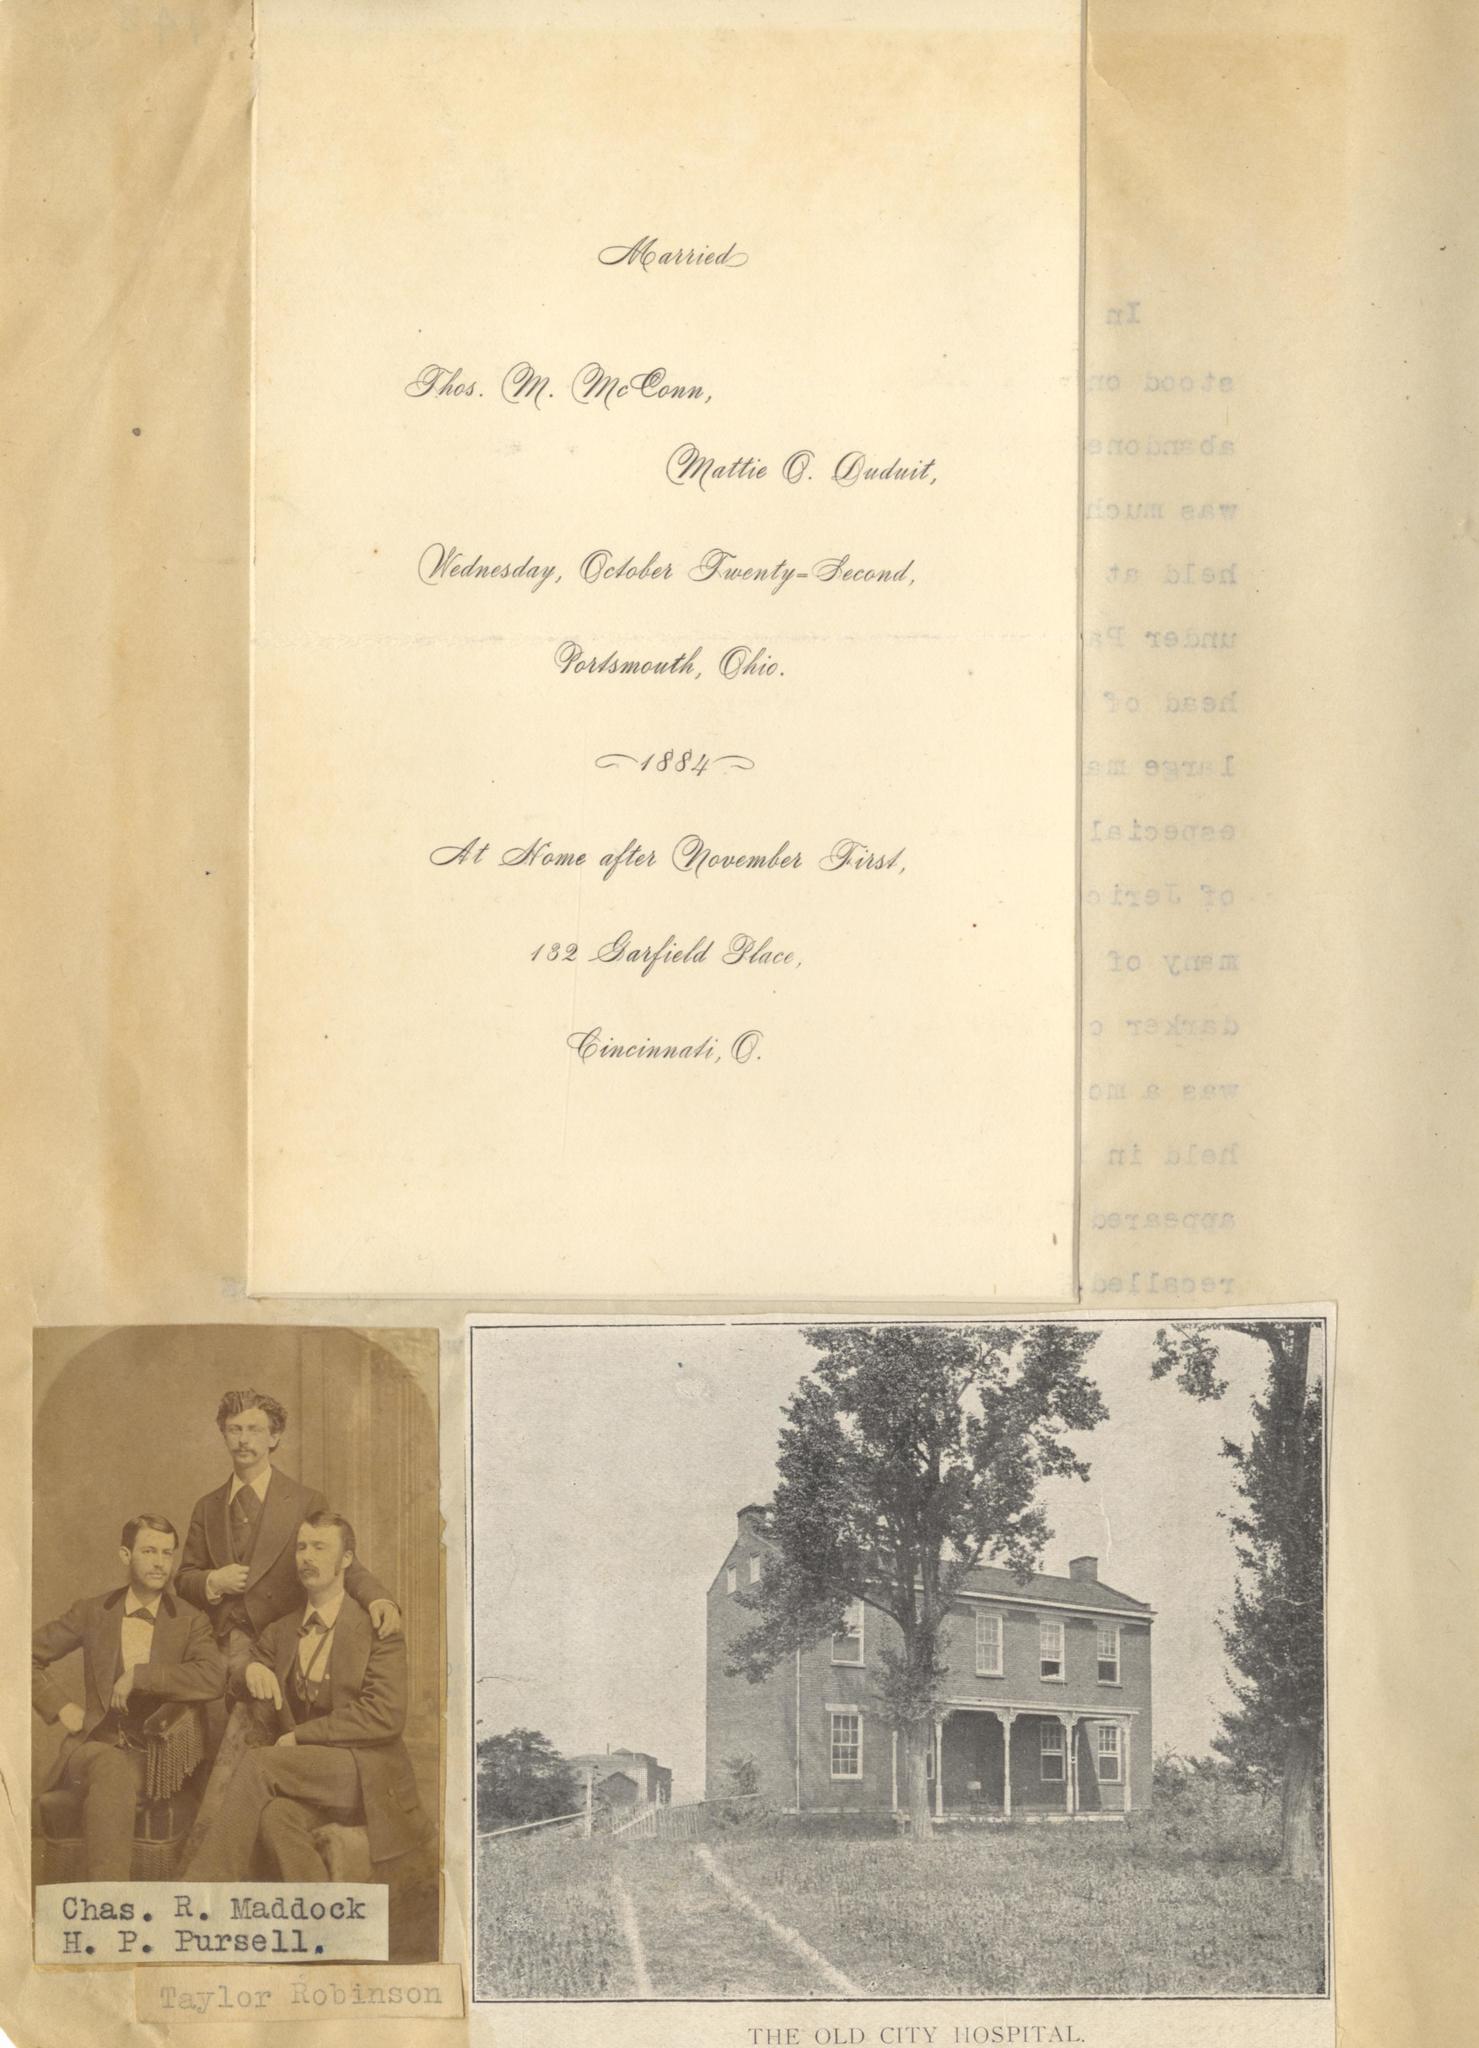 Married
Thos. M. McConn,
Mattie O. Duduit,
Wednesday, October Twenty=Second,
Portsmouth, Ohio.
1884
At Home after November First,
132 Garfield Place,
Cincinnati, O.
In
stood on
abandone
was much
held at
under Pa
head of
large ma
especial
of Jeric
many of
darker c
was a mo
held in
appeared
recalled.
Chas. R. Maddock
H. P. Pursell.
Taylor Robinson
THE OLD CITY HOSPITAL.